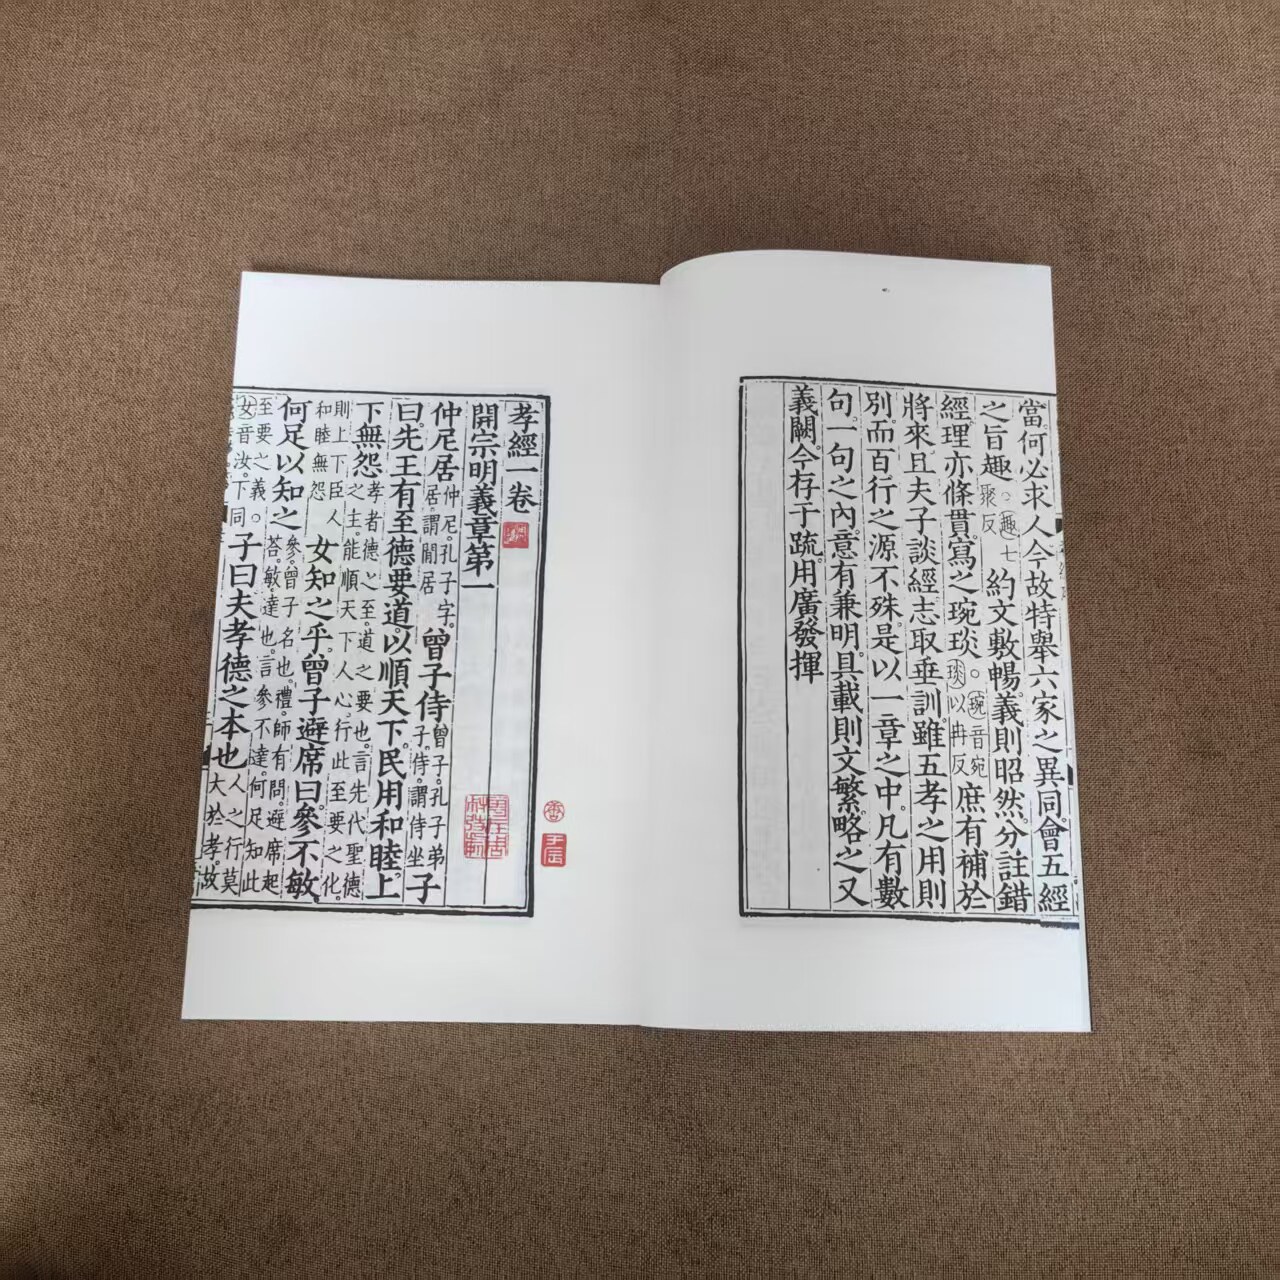 當。何必求人今故特舉六家之異同。會五經
之旨趣。○趣七聚反約文敷暢。義則昭然。分註錯
經。理亦條貫。寫之琬琰。○琬音宛琰以冉反庶有補於
將來。且夫子談經。志取垂訓。雖五孝之用則
別。而百行之源不殊。是以一章之中。凡有數
句。一句之內。意有兼明。具載則文繁。略之又
義闕。今存于疏。用廣發揮
孝經一卷
開宗明義章第一
仲尼居仲尼。孔子字。居。謂閒居曾子侍曾子。孔子弟子。侍。謂侍坐子
曰。先王有至德要道。以順天下。民用和睦。上
下無怨孝者德之至。道之要也。言先代聖德之主。能順天下人心。行此至要之化。
則上下臣人和睦無怨女知之乎。曾子避席曰。參不敏。
何足以知之參。曾子名也。禮。師有問。避席起荅。敏。達也。言參不達。何足知此
至要之義。○女音汝。下同子曰夫孝德之本也人之行莫大於孝。故
壬辰